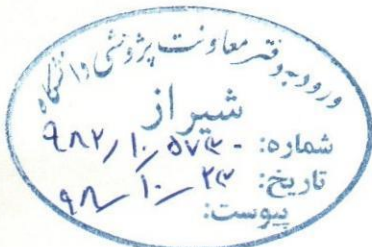 ورود به دفتر معاونت پژوهشی دانشگاه
شیراز
شماره: ۹۸۲/۱۰۵۷۳۰
تاریخ: ۹۸/۱۰/۲۳
پیوست: